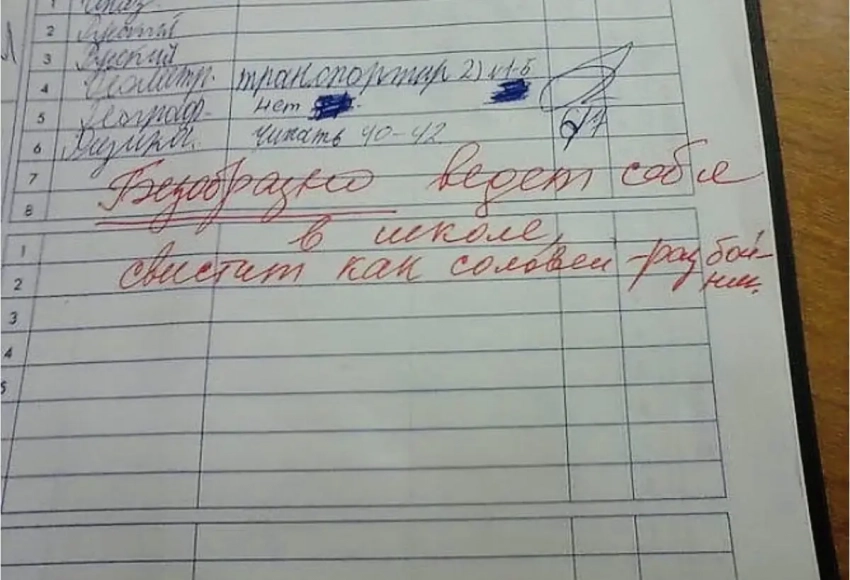 1
2
3 Русский
4 Геометр. транспортир 2) м1-5
5 Географ. нет
6 Физика. читать 40-42
7 Безобразно ведет себя
8 в школе,
1
2 свистит как соловей-разбой-
ник.
3
4
5